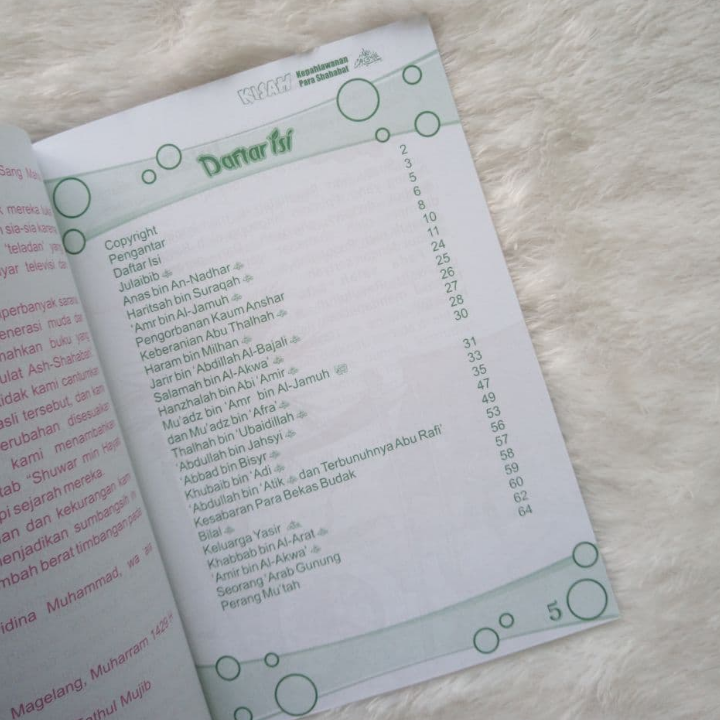 Sang Mah
mereka luka
sia-sia karena
'teladan' yang
yar televisi dan
perbanyak sarana
enerasi muda dan
nahkan buku yang
ulat Ash-Shahabah
tidak kami cantumkan
asli tersebut, dan kami
erubahan disesuaikan
kami menambahkan
tab "Shuwar min Hayat
pi sejarah mereka.
an dan kekurangan kami
enjadikan sumbangsih
mbah berat timbangan pada
idina Muhammad, wa
Magelang, Muharram 1429 H
Fathul Mujib
KISAH Kepahlawanan
Para Shahabat
Daftar Isi
Copyright 2
Pengantar 3
Daftar Isi 5
Julaibib 6
Anas bin An-Nadhar 8
Haritsah bin Suraqah 10
'Amr bin Al-Jamuh 11
Pengorbanan Kaum Anshar 24
Keberanian Abu Thalhah 25
Haram bin Milhan 26
Jarir bin 'Abdillah Al-Bajali 27
Salamah bin Al-Akwa' 28
Hanzhalah bin Abi 'Amir 30
Mu'adz bin 'Amr bin Al-Jamuh
dan Mu'adz bin 'Afra' 31
Thalhah bin 'Ubaidillah 33
'Abdullah bin Jahsyi 35
'Abbad bin Bisyr 47
Khubaib bin 'Adi 49
'Abdullah bin 'Atik dan Terbunuhnya Abu Rafi' 53
Kesabaran Para Bekas Budak 56
Bilal 57
Keluarga Yasir 58
Khabbab bin Al-Arat 59
'Amir bin Al-Akwa' 60
Seorang 'Arab Gunung 62
Perang Mu'tah 64
5